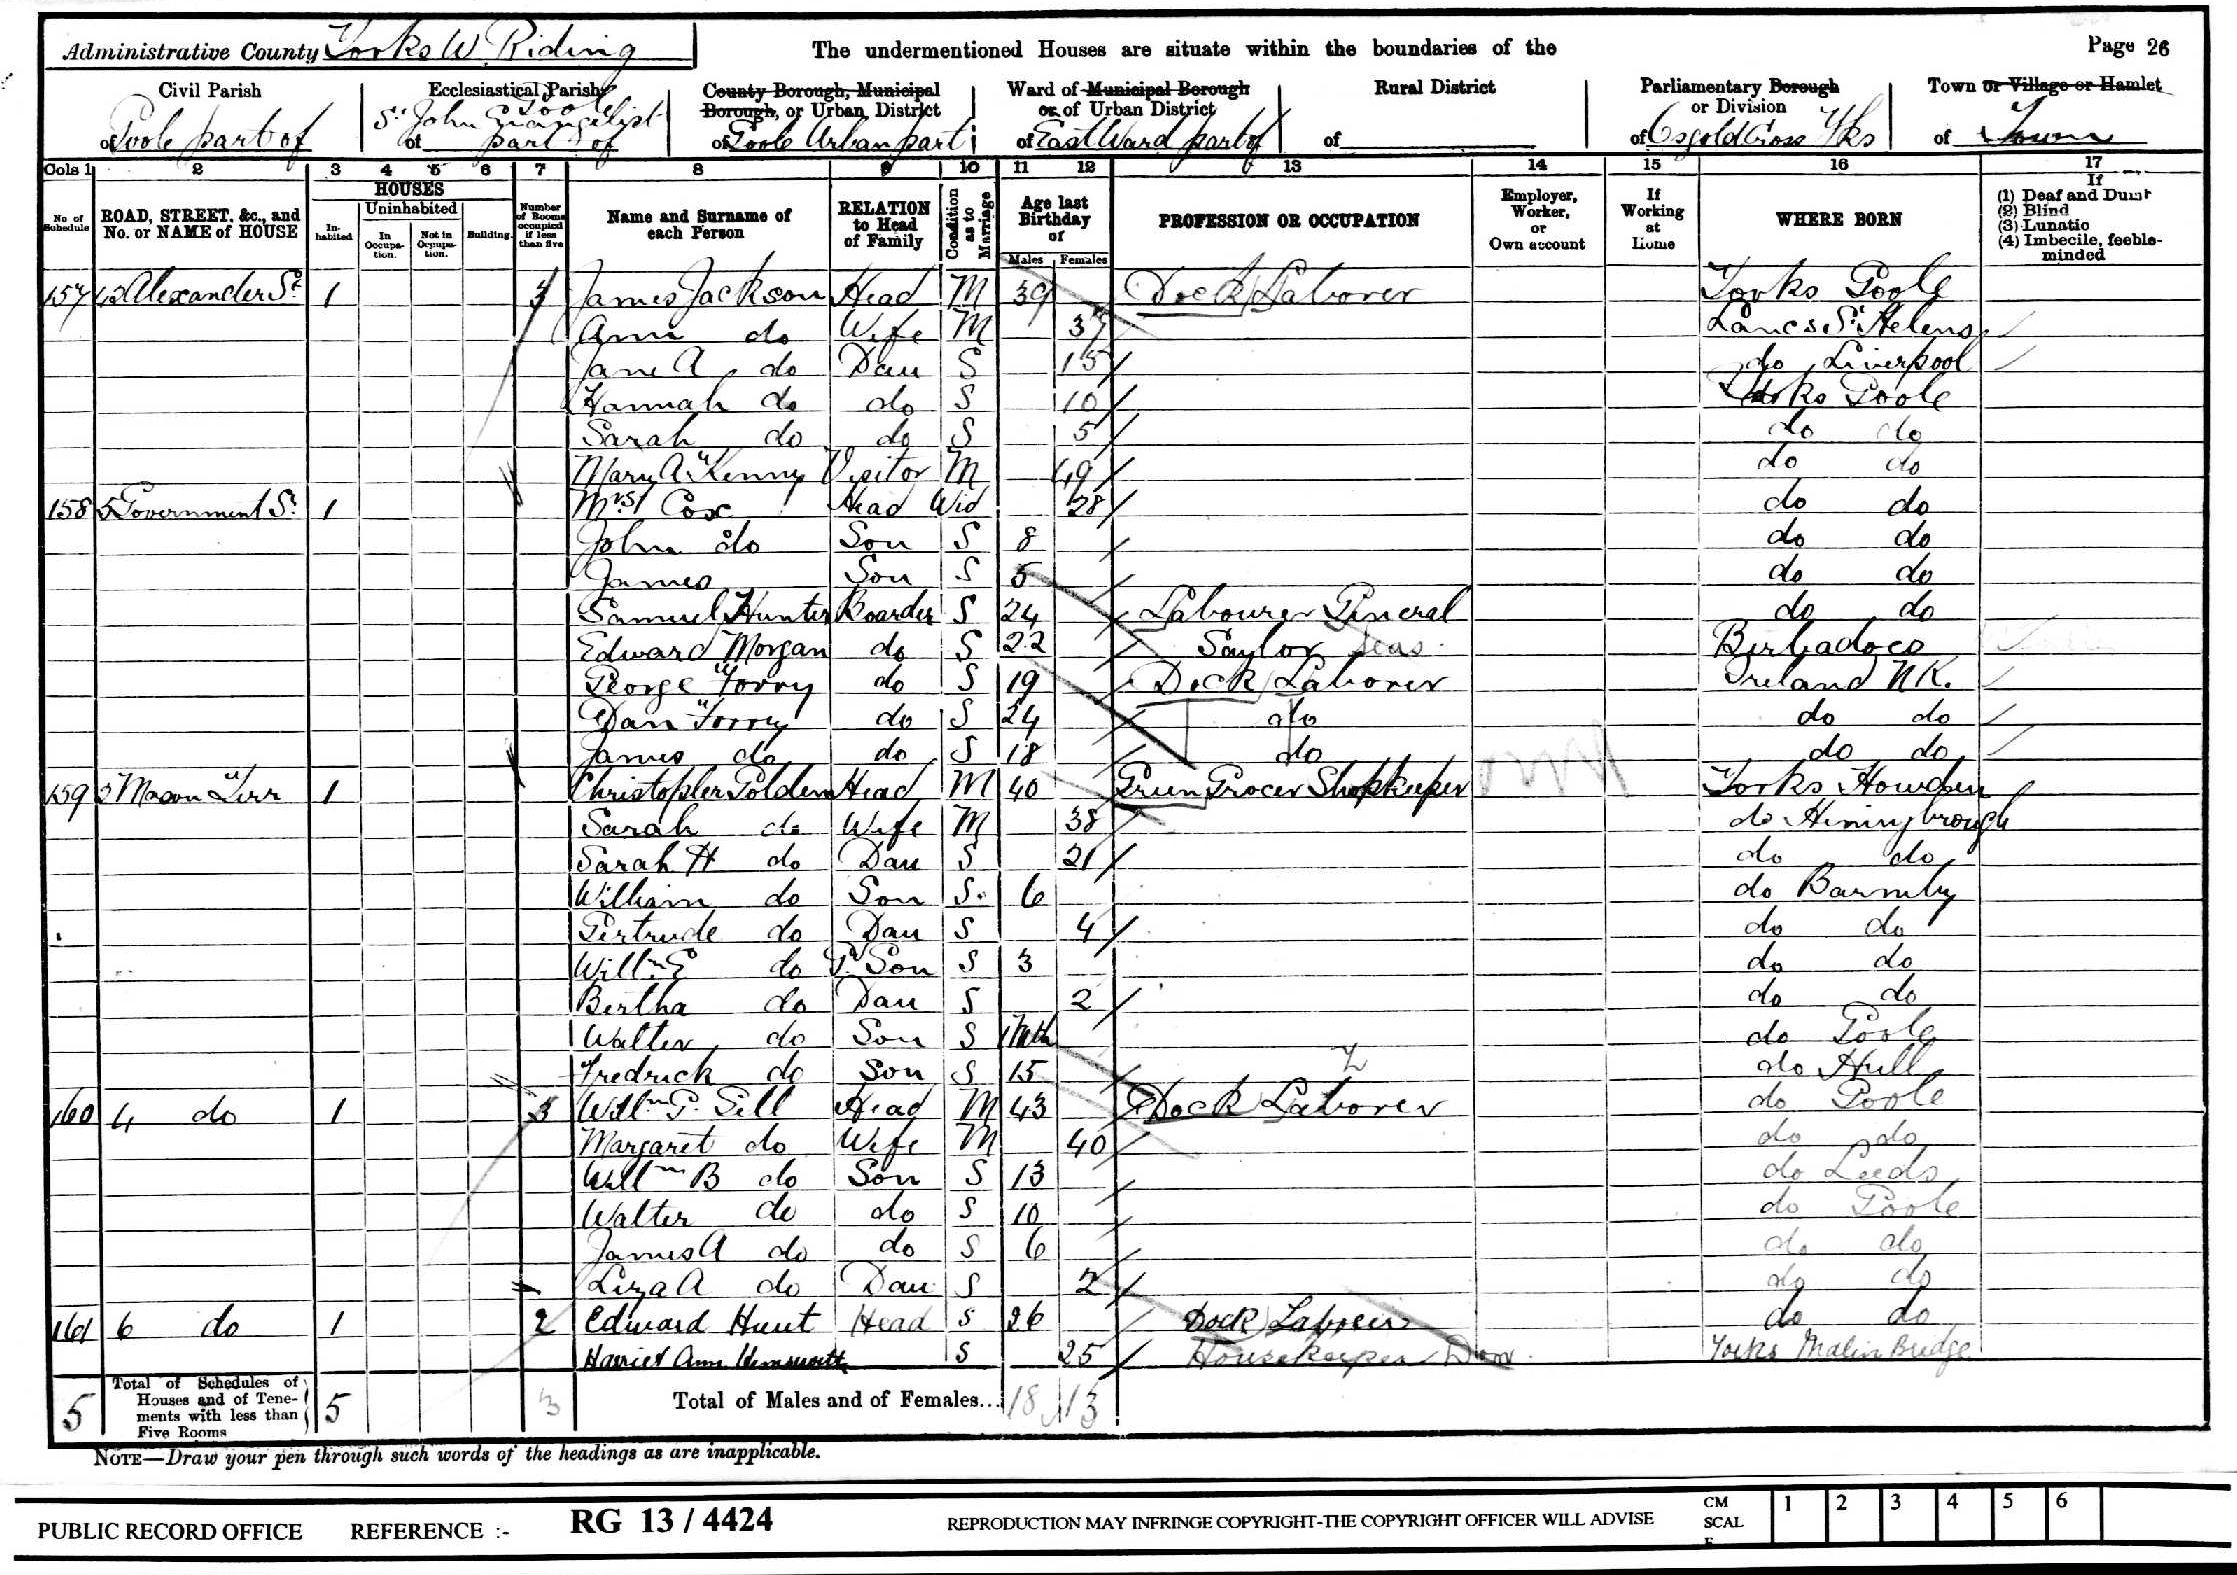 Administrative County Yorks W. Riding
The undermentioned Houses are situate within the boundaries of the
Page 26
Civil Parish
of Goole part of
Ecclesiastical Parish
of St John Evangelist Goole part of
County Borough, Municipal Borough, or Urban District
of Goole Urban part
Ward of Municipal Borough or of Urban District
of East Ward part of
Rural District
of
Parliamentary Borough or Division
of Osgoldcross Yks
Town or Village or Hamlet
of Town
Cols 1 2 3 4 5 6 7 8 9 10 11 12 13 14 15 16 17
No. of Schedule
ROAD, STREET, &c., and No. or NAME of HOUSE
HOUSES
In-habited
Uninhabited
In Occupa-tion.
Not in Occupa-tion.
Building.
Number of Rooms occupied if less than five
Name and Surname of each Person
RELATION to Head of Family
Condition as to Marriage
Age last Birthday of
Males Females
PROFESSION OR OCCUPATION
Employer, Worker, or Own account
If Working at Home
WHERE BORN
If
(1) Deaf and Dumb
(2) Blind
(3) Lunatic
(4) Imbecile, feeble-minded
157 42 Alexander St. 1 3 James Jackson Head M 39 Dock Laborer Yorks Goole
Ann do Wife M 37 Lancs St Helens
Jane A do Dau S 15 do Liverpool
Hannah do do S 10 Yorks Goole
Sarah do do S 5 do do
Mary A Kenny Visitor M 49 do do
158 5 Government St. 1 Mrs Cox Head Wid 28 do do
John do Son S 8 do do
James Son S 5 do do
Samuel Hunter Boarder S 24 Labourer General do do
Edward Morgan do S 22 Saylor Seas Berbadoes
George Torry do S 19 Dock Laborer Ireland N.K.
Dan Torry do S 24 do do do
James do do S 18 do do do
159 5 Mason Terr 1 Christopher Goldern Head M 40 Grun Grocer Shopkeeper Yorks Howden
Sarah do Wife M 38 do Hiningbrough
Sarah H do Dau S 21 do do
William do Son S. 6 do Barmby
Gertrude do Dau S 4 do do
Willm E do G. Son S 3 do do
Bertha do Dau S 2 do do
Walter do Son S 1 Mth do Goole
Fredrick do Son S 15 do Hull
160 4 do 1 3 Willm G. Sill Head M 43 Dock Laborer do Goole
Margaret do Wife M 40 do do
Willm B do Son S 13 do Leeds
Walter do do S 10 do Goole
James A do do S 6 do do
Liza A do Dau S 2 do do
161 6 do 1 2 Edward Hunt Head S 26 Dock Laborer do do
Harriet Ann Hemsworth S 25 Housekeeper Dom Yorks Malin Bridge
5 Total of Schedules of Houses and of Tene-ments with less than Five Rooms 5 3 Total of Males and of Females... 18 13
NOTE—Draw your pen through such words of the headings as are inapplicable.
PUBLIC RECORD OFFICE REFERENCE :- RG 13 / 4424 REPRODUCTION MAY INFRINGE COPYRIGHT-THE COPYRIGHT OFFICER WILL ADVISE CM SCALE 1 2 3 4 5 6